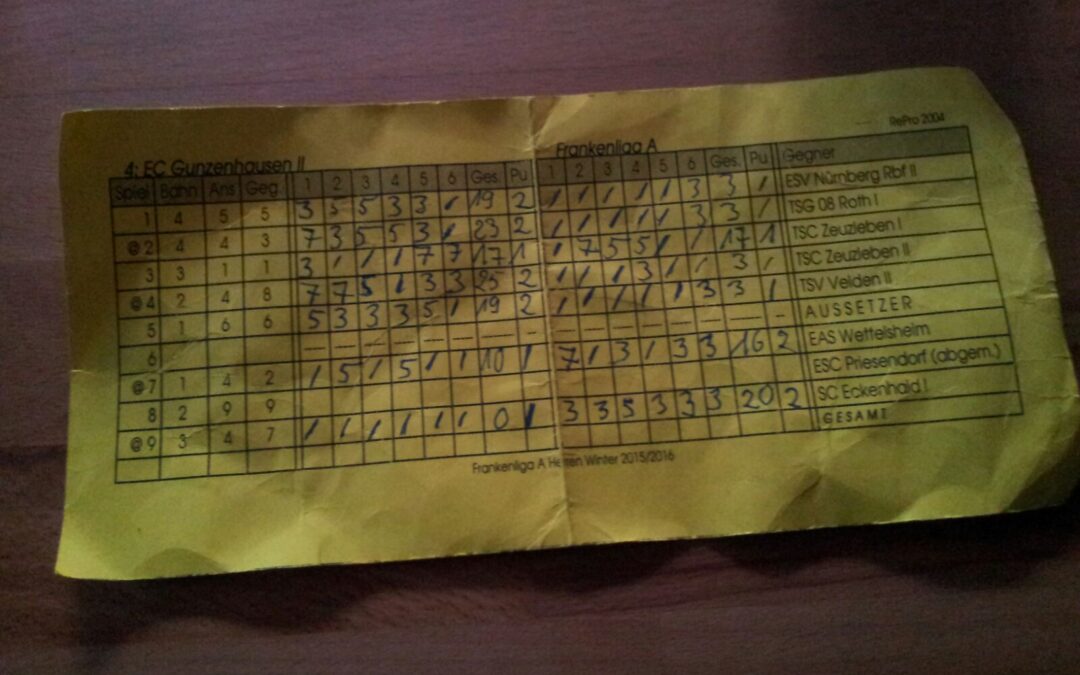 RePro 2004
4: EC Gunzenhausen II Frankenliga A
Spiel Bahn Ans Geg. 1 2 3 4 5 6 Ges. Pu 1 2 3 4 5 6 Ges. Pu Gegner
1 4 5 5 3 5 5 3 3 / 19 2 / / / / / 3 3 / ESV Nürnberg Rbf II
@2 4 4 3 7 3 5 5 3 / 23 2 / / / / / 3 3 / TSG 08 Roth I
3 3 1 1 3 / / / 7 7 17 1 / 7 5 5 / / 17 1 TSC Zeuzleben I
@4 2 4 8 7 7 5 / 3 3 25 2 / / / 3 / / 3 / TSC Zeuzleben II
5 1 6 6 5 3 3 3 5 / 19 2 / / / / / 3 3 / TSV Velden II
6 — — — — — — — — — — — — — — — — AUSSETZER
@7 1 4 2 / 5 / 5 / / 10 / 7 / 3 / 3 3 16 2 EAS Wettelsheim
8 2 9 9 ESC Priesendorf (abgem.)
@9 3 4 7 / / / / / / 0 1 3 3 5 3 3 3 20 2 SC Eckenhaid I
GESAMT
Frankenliga A Herren Winter 2015/2016